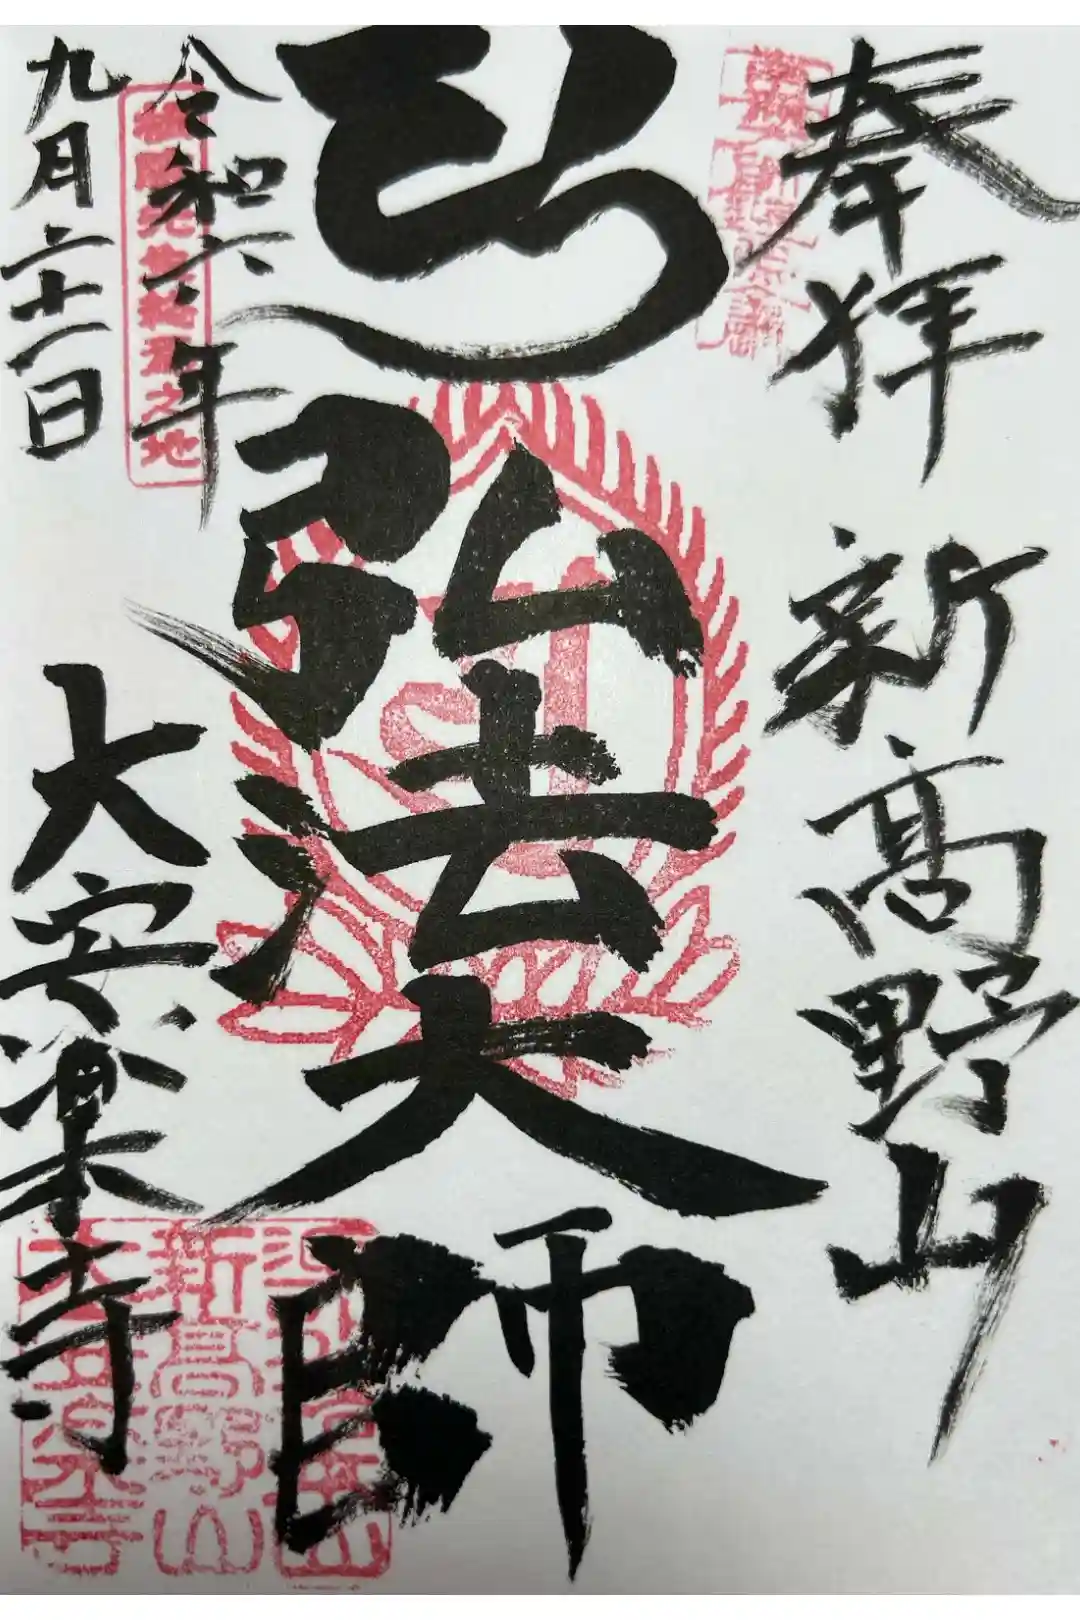 奉拝
新高野山
弘法大師
令和六年
九月二十一日
大安楽寺
新高野山